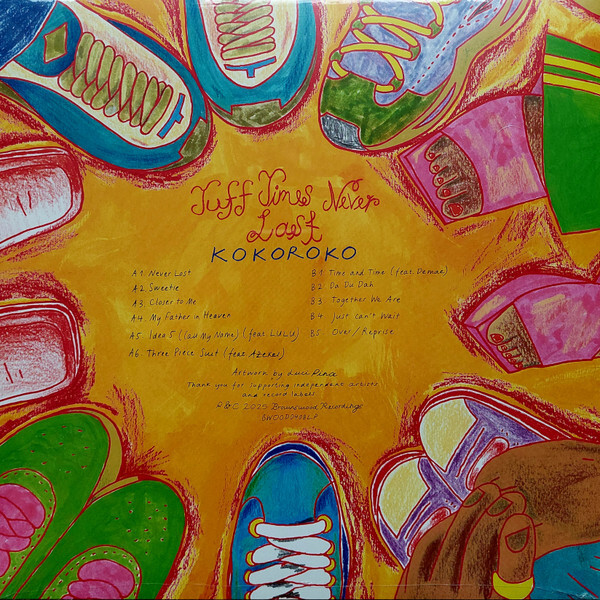 Tuff Times Never
Last
KOKOROKO
A1. Never Lost
A2. Sweetie
A3. Closer to Me
A4. My Father in Heaven
A5. Idea 5 (Call My Name) (feat. LULU)
A6. Three Piece Suit (feat. Azekel)
B1. Time and Time (feat. Demae)
B2. Da Du Dah
B3. Together We Are
B4. Just Can't Wait
B5. Over / Reprise
Artwork by Luci Pina
Thank you for supporting independent artists
and record labels.
P & C 2025 Brownswood Recordings